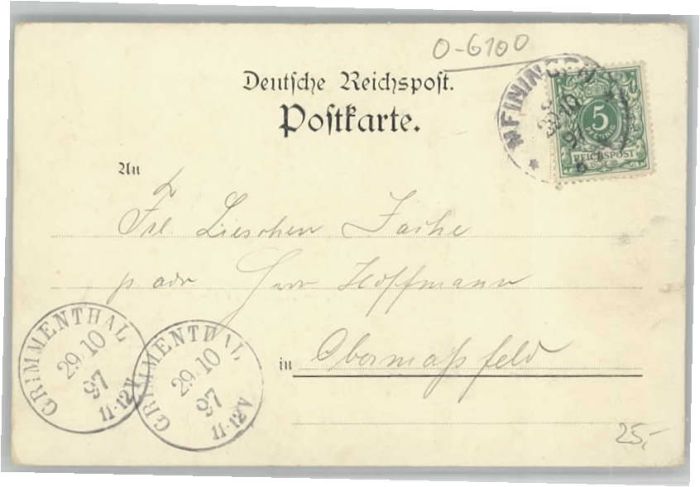 O-6100
Deutsche Reichspost.
Postkarte.
MEININGEN
29 10
97
5
REICHSPOST
An
Frl. Lieschen Fache
p adr Herr Hoffmann
in Obermaßfeld
GRIMMENTHAL
29.10
97
11-12V
GRIMMENTHAL
29.10
97
11-12V
25,-